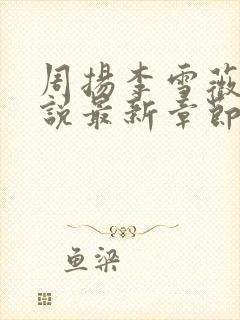 周揚李雪薇
説最新章節
鱼梁